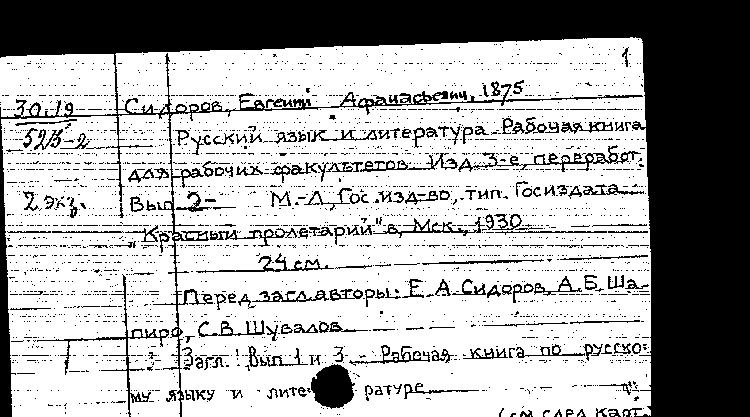 1
30.19 Сидоров, Евгений Афанасьевич, 1875
52/5-2 Русский язык и литература. Рабочая книга
для рабочих факультетов. Изд. 3-е, переработ.
2 экз. Вып. 2- М.-Л., Гос. изд-во, тип. Госиздата
"Красный пролетарий" в Мск., 1930.
24 см.
Перед загл. авторы: Е.А. Сидоров, А.Б. Ша-
пиро, С.В. Шувалов.
Загл. Вып 1 и 3. - Рабочая книга по русско-
му языку и лите ратуре
(см. след. карт.